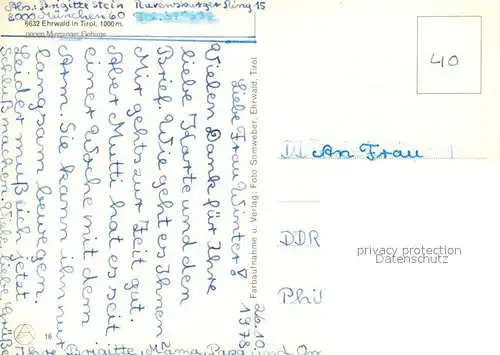 Abs: Brigitte Stein Ravensburger Ring 15
8000 München 60
6632 Ehrwald in Tirol, 1000 m,
gegen Mieminger Gebirge
40
26.10.
1978
Liebe Frau Winter!
Vielen Dank für Ihre
liebe Karte und den
Brief. Wie geht es Ihnen
Mir gehts zur Zeit gut.
Aber Mutti hat es seit
einer Woche mit dem
Arm. Sie kann ihn nur
langsam bewegen.
Leider muß ich jetzt
Schluß machen. Viele liebe Grüße
Ihre Brigitte, Mama, Papa und Om
Farbaufnahme u. Verlag: Foto Somweber, Ehrwald, Tirol
16
An Frau
DDR
Phil
privacy protection
Datenschutz